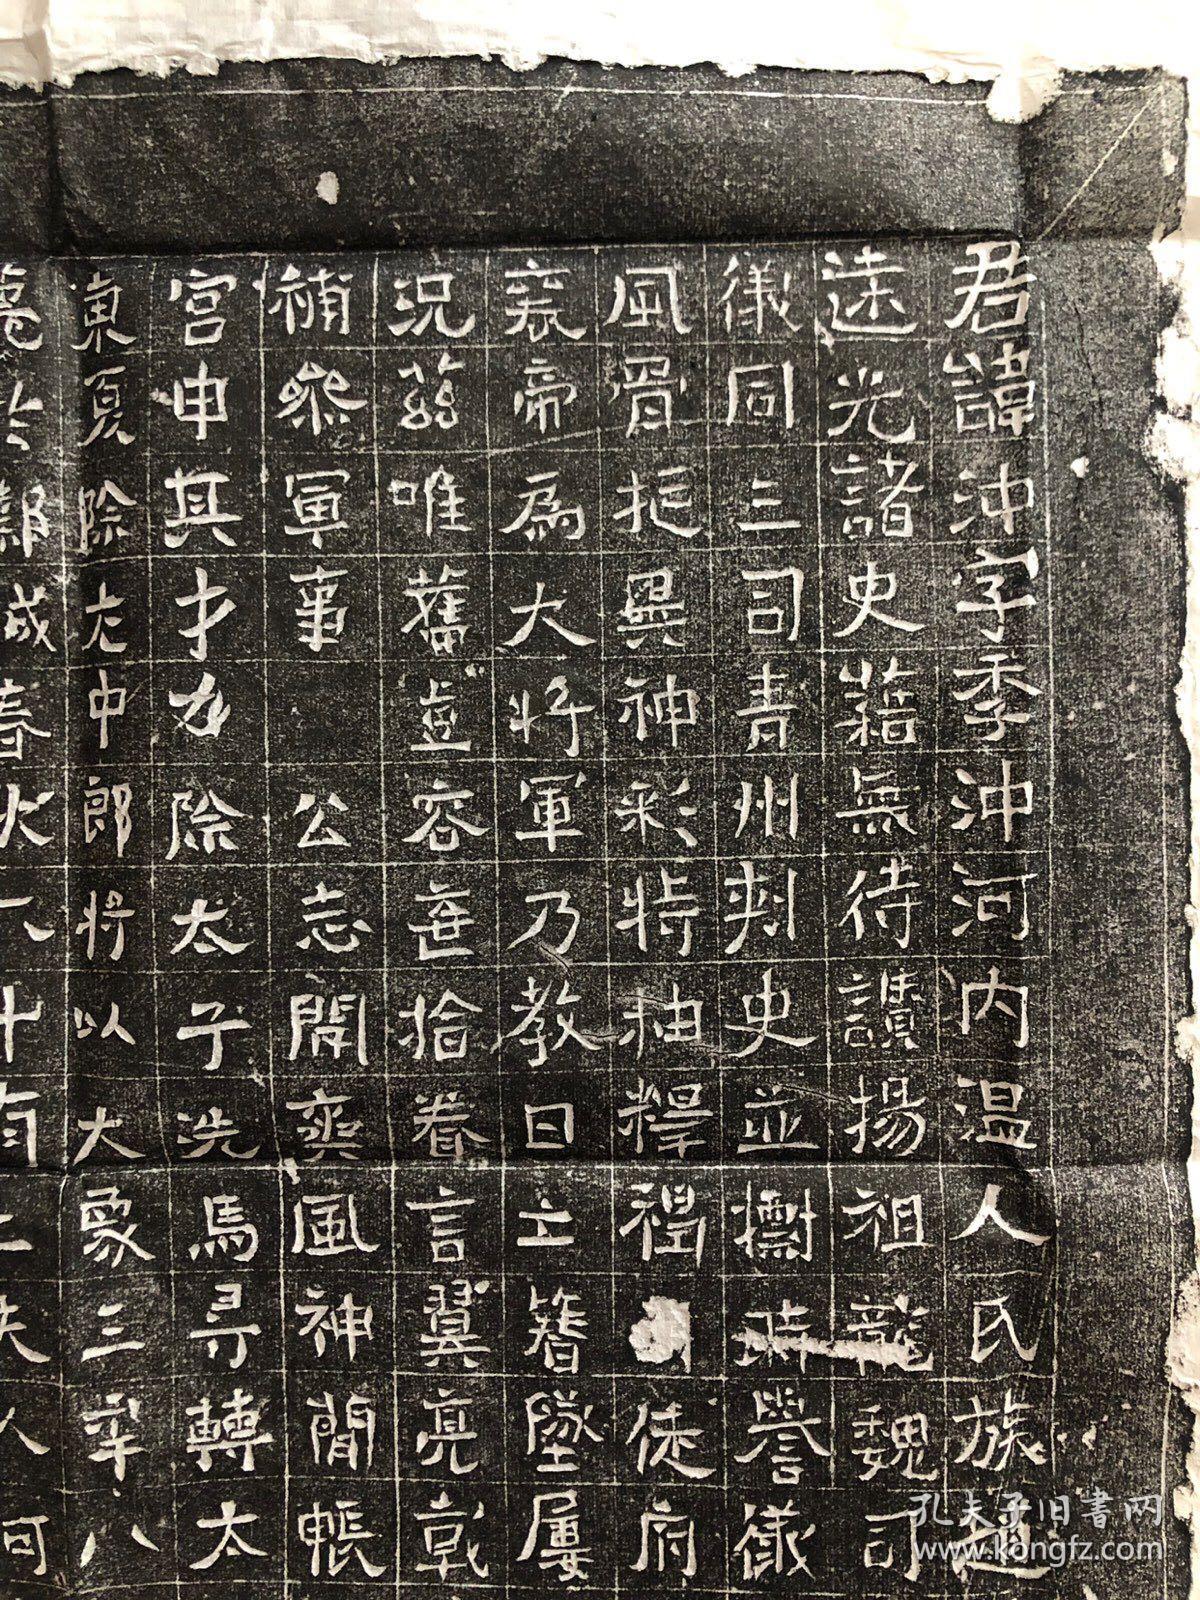 君諱沖字季沖河内温人氏族超
遠光諸史藉無待讚揚祖龍魏司
儀同三司青州刾史並擲譽儀
風骨挺異神彩特抽釋褐司徒府
襄帝為大将軍乃教曰亡簪墜屢
況茲唯舊虛容無拾眷言翼亮戢
補叅軍事 公志開爽風神簡帳
宮申其才力除太子洗馬尋轉太
東夏除左中郎将以大象三年八
薨於鄴城春秋八十有二夫人河
孔夫子旧書网
www.kongfz.com